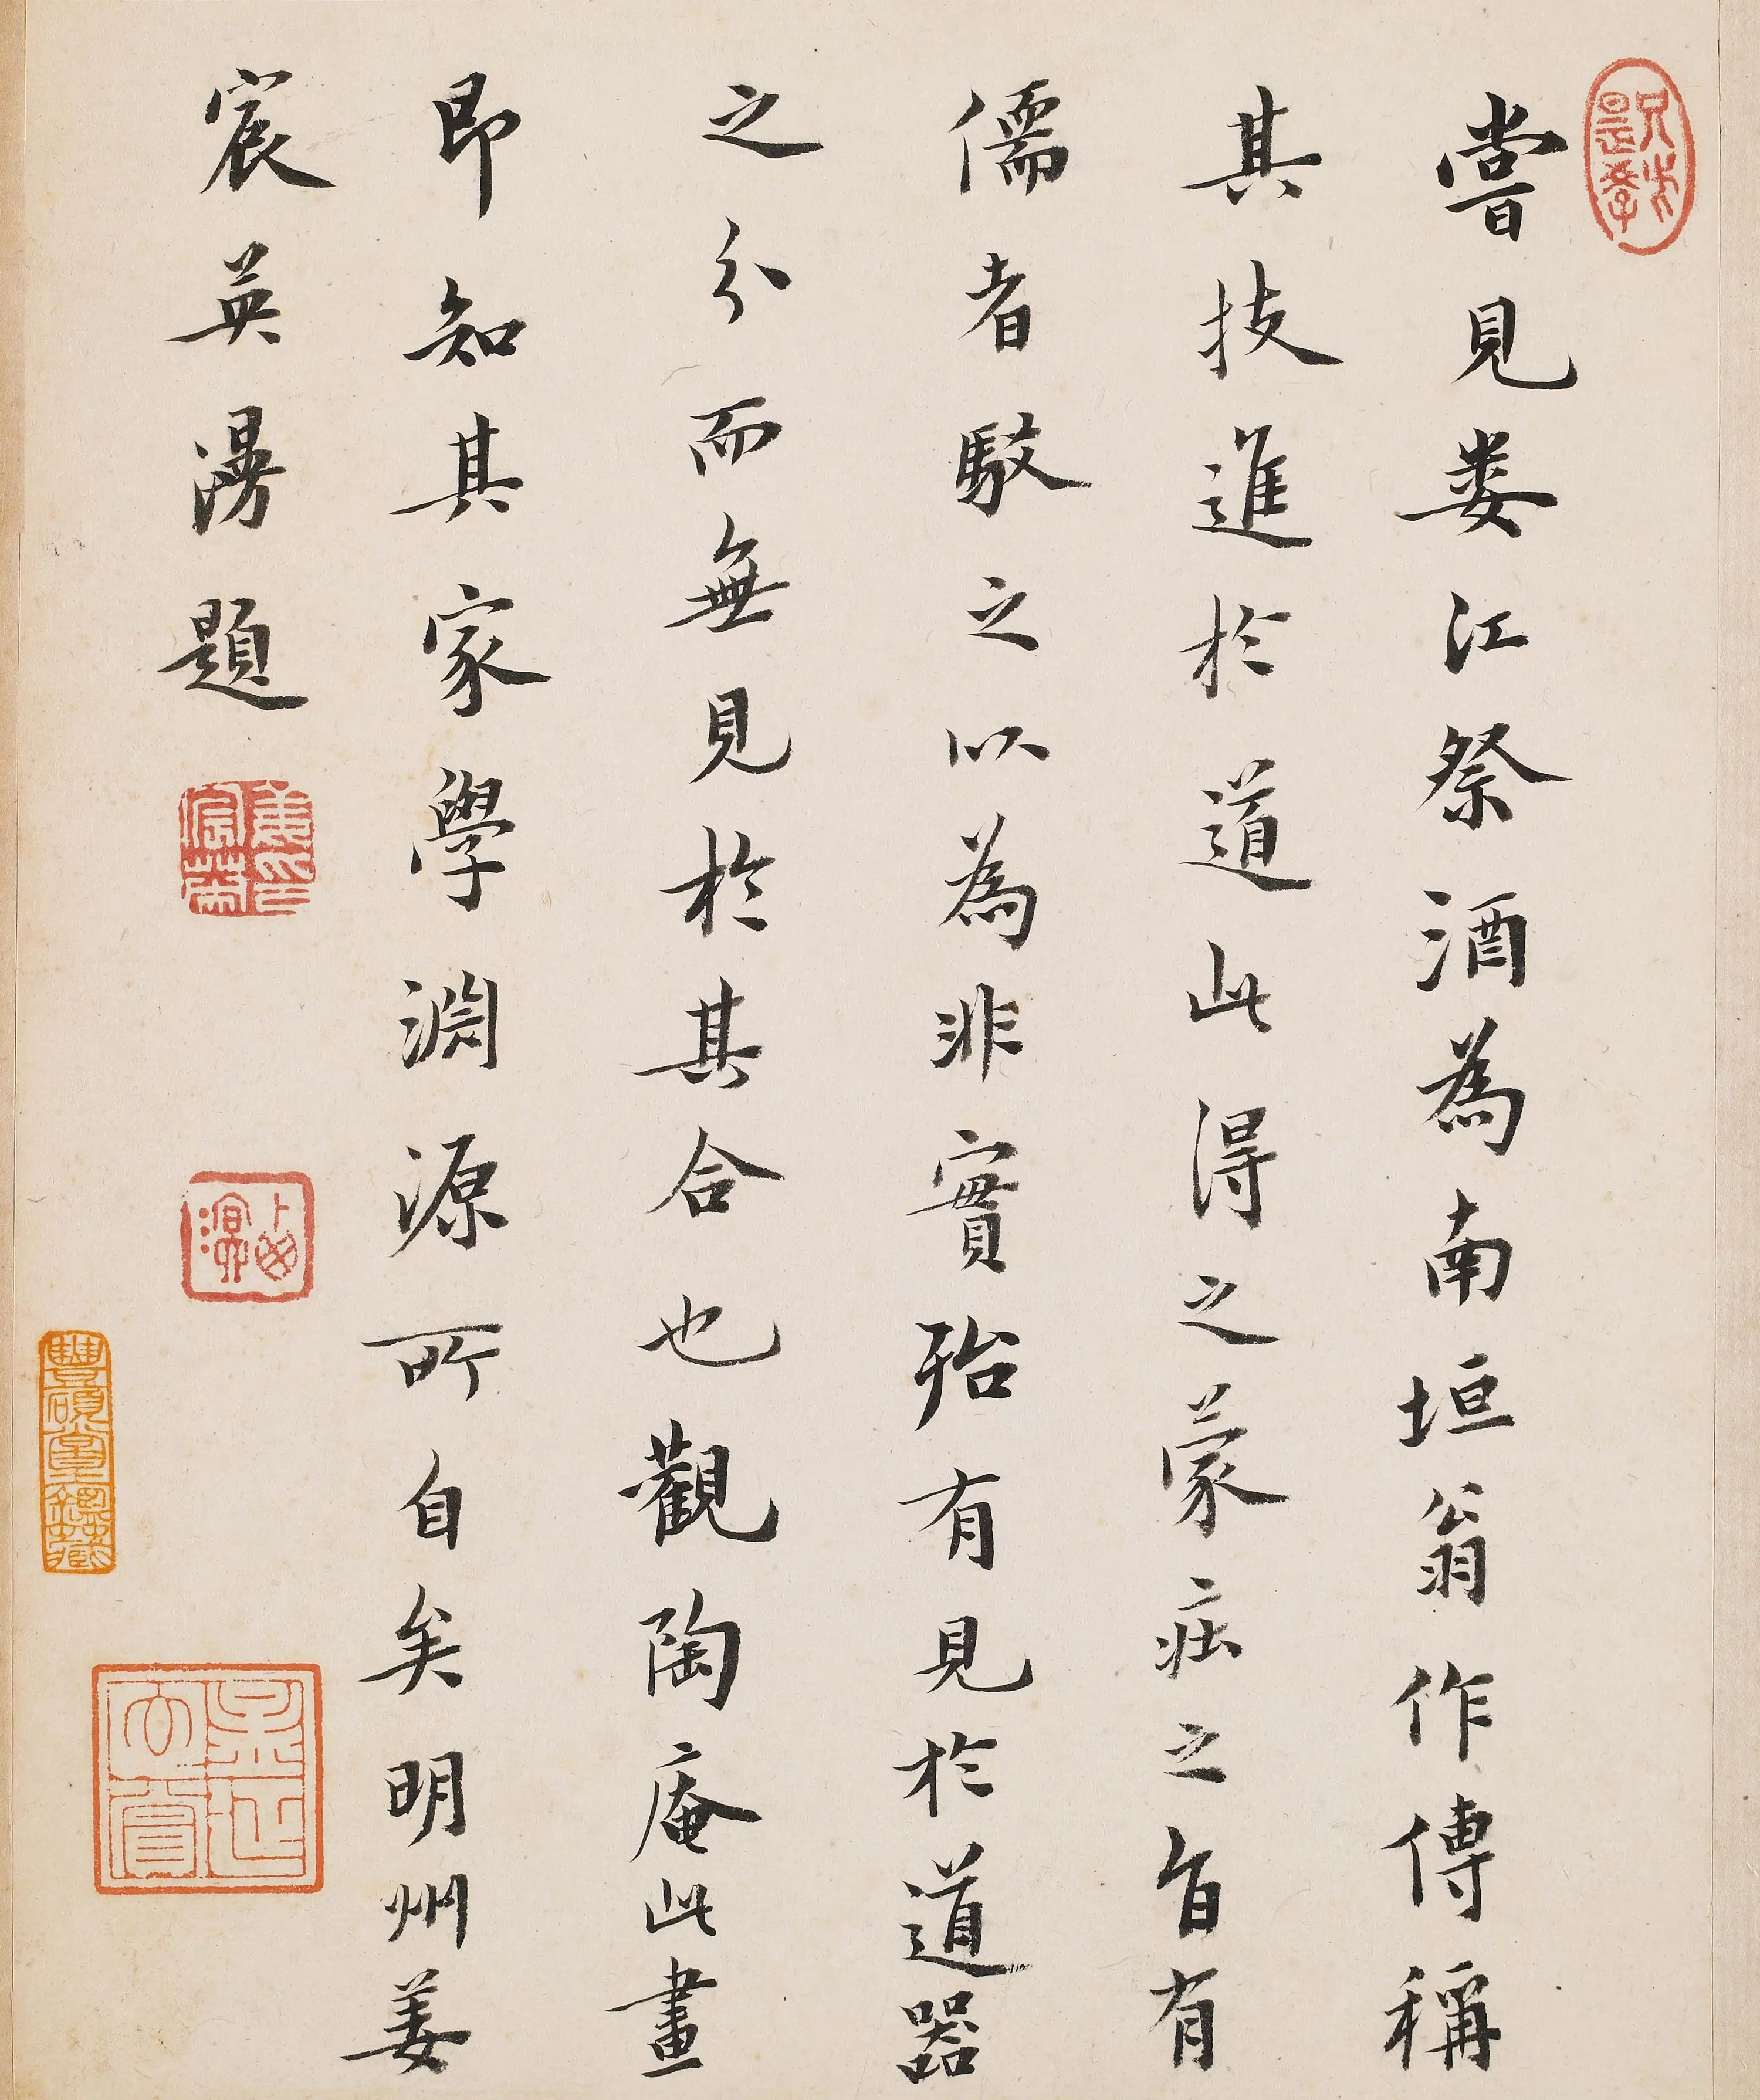 嘗見婁江祭酒為南垣翁作傳稱
其技進於道此得之蒙莊之旨有
儒者駁之以為非實殆有見於道器
之分而無見於其合也觀陶庵此畫
即知其家學淵源所自矣明州姜
宸英漫題
姜宸英印
豐碩堂鑑藏